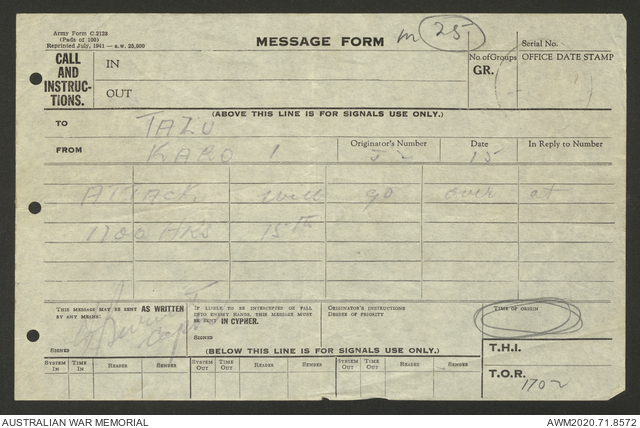 Army Form C.2128
(Pads of 100)
Reprinted July, 1941—s.w. 25,000
MESSAGE FORM
m 25
Serial No.
CALL AND INSTRUC-TIONS.
IN
OUT
No. of Groups
GR.
OFFICE DATE STAMP
(ABOVE THIS LINE IS FOR SIGNALS USE ONLY.)
TO TAZU
FROM KARO 1
Originator's Number
Date 15
In Reply to Number
ATTACK will go over at
1700 HRS 15th
THIS MESSAGE MAY BE SENT AS WRITTEN BY ANY MEANS.
SIGNED
Capt
IF LIABLE TO BE INTERCEPTED OR FALL INTO ENEMY HANDS, THIS MESSAGE MUST BE SENT IN CYPHER.
SIGNED
ORIGINATOR'S INSTRUCTIONS
DEGREE OF PRIORITY
TIME OF ORIGIN
T.H.I.
T.O.R. 1702
(BELOW THIS LINE IS FOR SIGNALS USE ONLY.)
SYSTEM IN TIME IN READER SENDER SYSTEM OUT TIME OUT READER SENDER SYSTEM OUT TIME OUT READER SENDER
AUSTRALIAN WAR MEMORIAL
AWM2020.71.8572